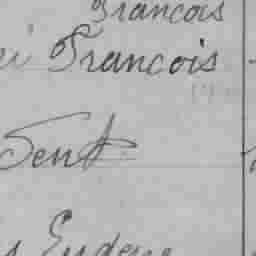 Francois
Francois
Sent
Eugene